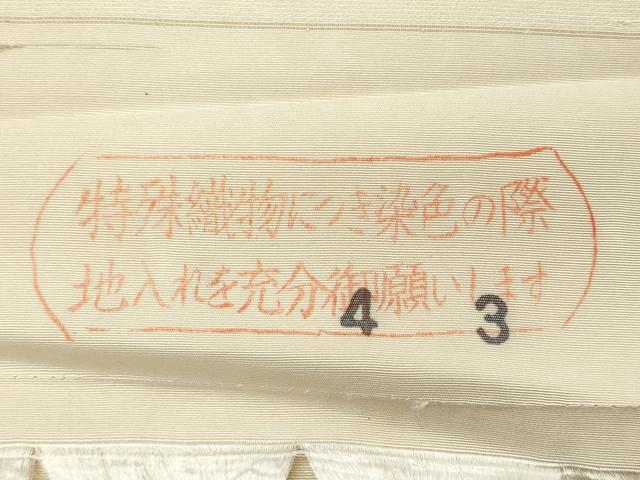 特殊織物につき染色の際
地入れを充分御願いします
4 3